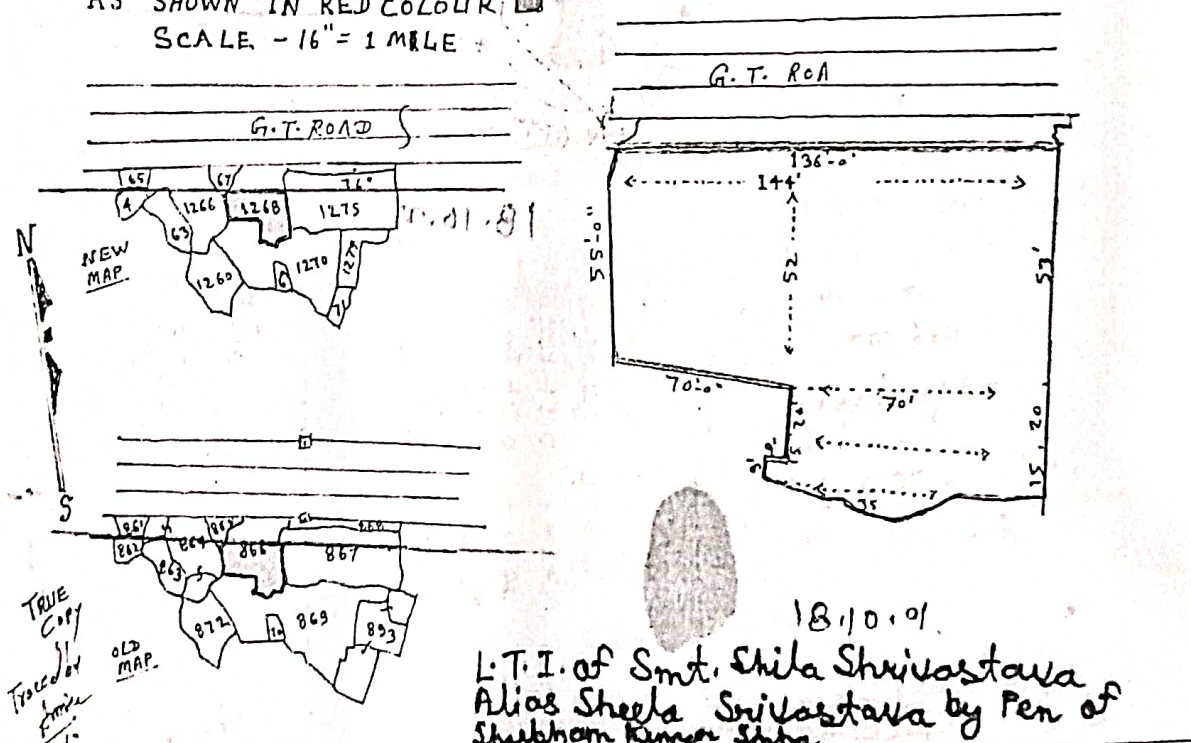 AS SHOWN IN RED COLOUR
SCALE - 16" = 1 MILE
G.T. ROAD
165
67
76
4
1266
1268
1275
63
1260
6
1270
1274
71
N
NEW
MAP.
S
861
862
864
866
867
863
5
872
869
893
OLD
MAP.
TRUE
COPY
Traced by
G.T. ROA
136'-0"
144'
55'-0"
52
53'
70'-0"
70'
20
15
35
18.10.01
L.T.I. of Smt. Shila Shrivastava
Alias Sheela Srivastava by Pen of
Shubham Kumar